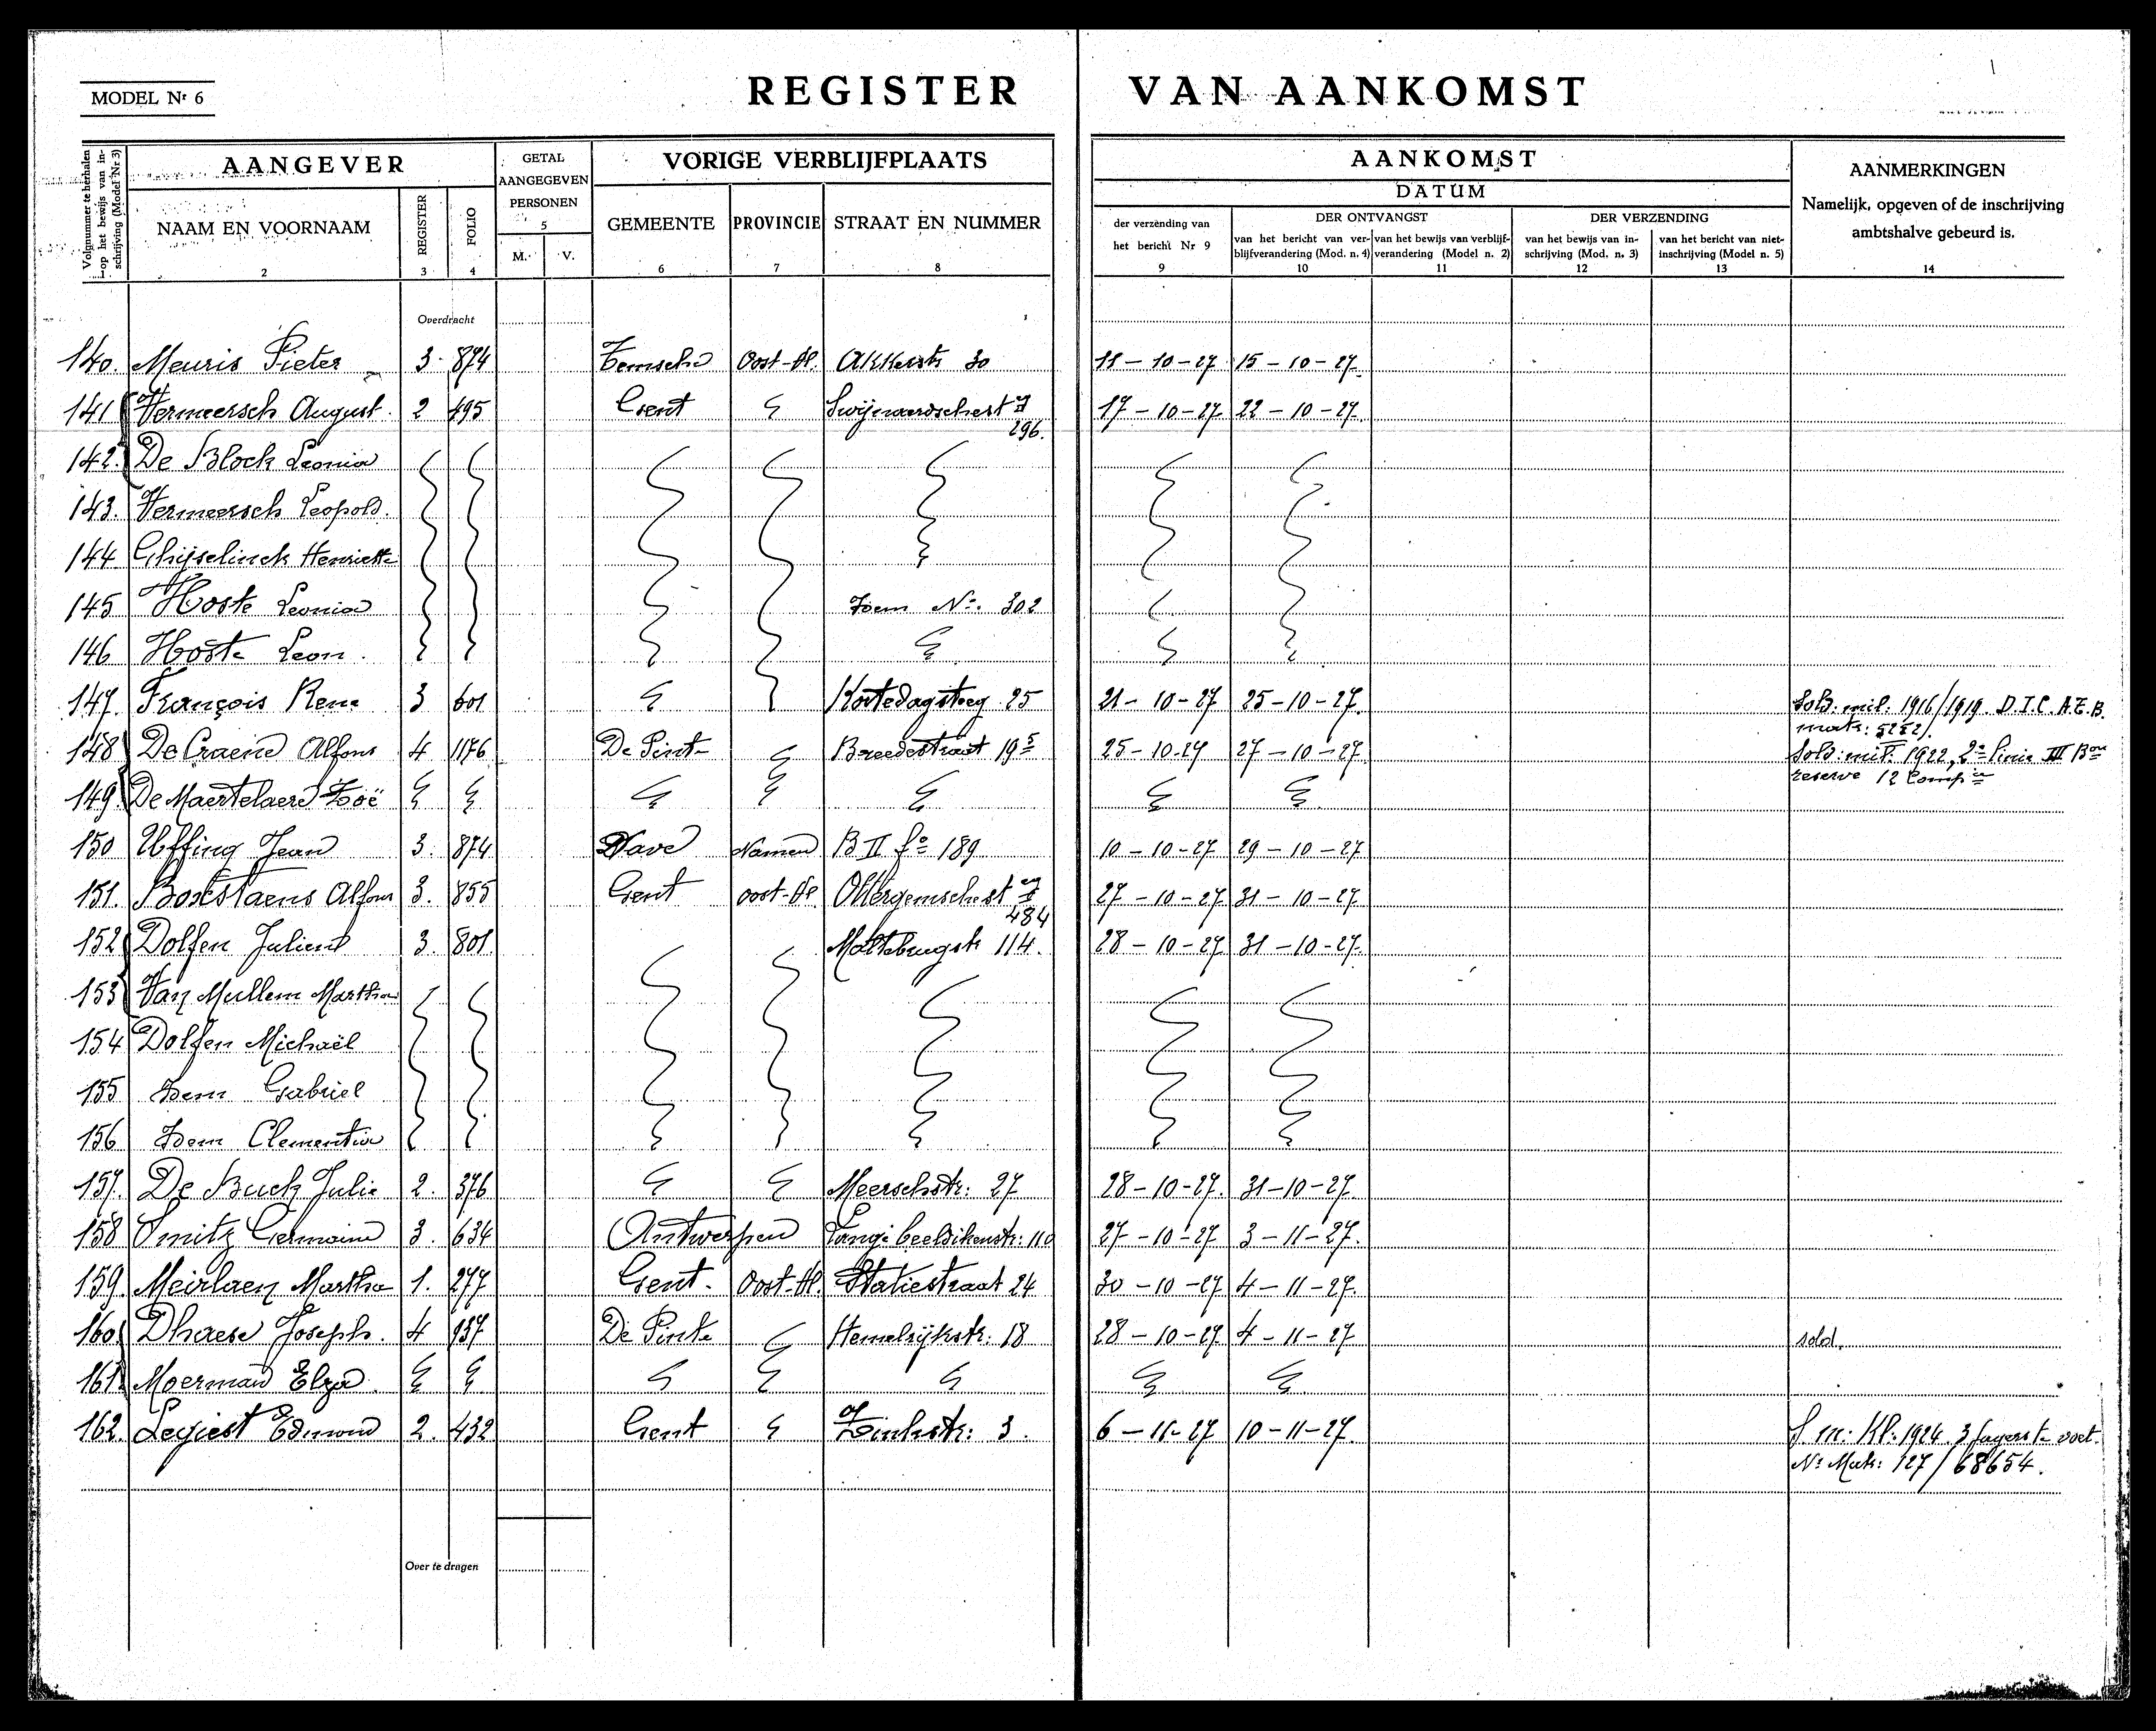 MODEL Nr 6
REGISTER VAN AANKOMST
Volgnummer te herhalen op het bewijs van inschrijving (Model Nr 3)
AANGEVER
GETAL AANGEGEVEN PERSONEN
VORIGE VERBLIJFPLAATS
AANKOMST
AANMERKINGEN
Namelijk, opgeven of de inschrijving ambtshalve gebeurd is.
DATUM
NAAM EN VOORNAAM
REGISTER
FOLIO
5
M. V.
GEMEENTE PROVINCIE STRAAT EN NUMMER
der verzending van het bericht Nr 9
DER ONTVANGST
DER VERZENDING
van het bericht van verblijfverandering (Mod. n. 4)
van het bewijs van verblijfverandering (Model n. 2)
van het bewijs van inschrijving (Mod. n. 3)
van het bericht van niet-inschrijving (Model n. 5)
2 3 4 6 7 8 9 10 11 12 13 14
Overdracht
140. Meuris Pieter 3. 874 Temsche Oost-Vl. Akkerstr 30 11-10-27 15-10-27
141 Vermeersch August. 2 495 Gent Swijnaerdschest 296. 17-10-27 22-10-27
142. De Block Leonia
143. Vermeersch Leopold.
144 Ghijselinck Henriette
145 Hoste Leonia Idem No. 302
146 Hoste Leon.
147. François Rene 3 601 Kortedagsteeg 25 21-10-27 25-10-27. Sold. mil. 1916/1919. D.T.C. A.E.B.
matr: 5252/.
148 De Craene Alfons 4 1176 De Pinte Breedestraat 195 25-10-27 27-10-27 Sold. mil. 1922, 2e linie III Bon
reserve 12 Compie
149 De Maertelaere Zoë
150 Uffing Jean 3. 874 Nave Namen B II fo 189 10-10-27 29-10-27
151. Alfons 3. 855 Gent Oost-Vl 484 27-10-27 31-10-27
152 Dolfen Julient 3. 801 Maltebrugstr 114. 28-10-27 31-10-27.
153 Van Mullem Martha
154 Dolfen Michaël
155 Idem Gabriel
156 Idem Clementine
157. De Buck Julie 2. 376 Meerschstr: 27 28-10-27. 31-10-27.
158 Smitz Germaine 3. 634 Antwerpen Lange beeldekenstr: 110 27-10-27 3-11-27.
159. Meirlaen Martha 1. 277 Gent. Oost-Vl. Statiestraat 24 30-10-27 4-11-27.
160. Dhaese Joseph. 4 937 De Pinte Hemelrijkstr: 18 28-10-27 4-11-27 sold.
161. Moerman Elza
162. Legiest Edmond 2. 432 Gent Zinkstr: 3. 6-11-27 10-11-27. S. m. Kl: 1924. 3 Jagers te voet.
No Matr: 127/68654.
Over te dragen